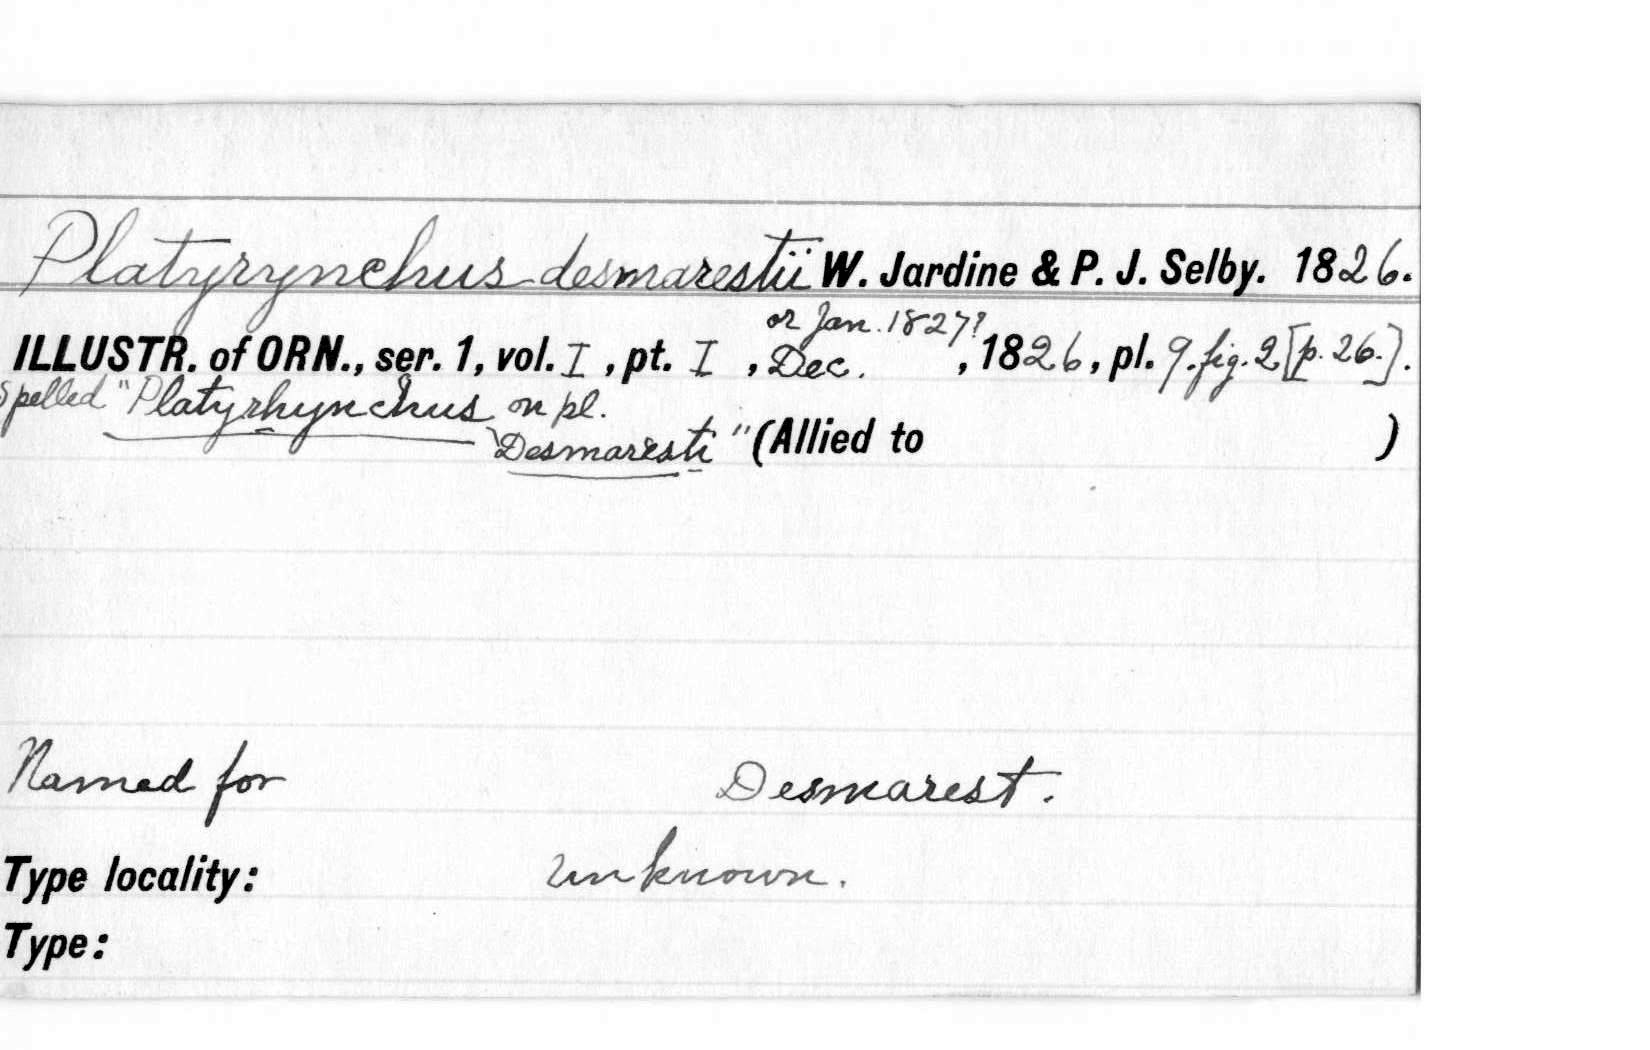 Platyrynchus desmarestii W. Jardine & P. J. Selby. 1826.
or Jan. 1827?
ILLUSTR. of ORN., ser. 1, vol. I, pt. I, Dec. , 1826, pl. 9. fig. 2 [p. 26.].
Spelled "Platyrhynchus on pl.
Desmaresti" (Allied to )
Named for Desmarest.
Type locality: unknown.
Type: